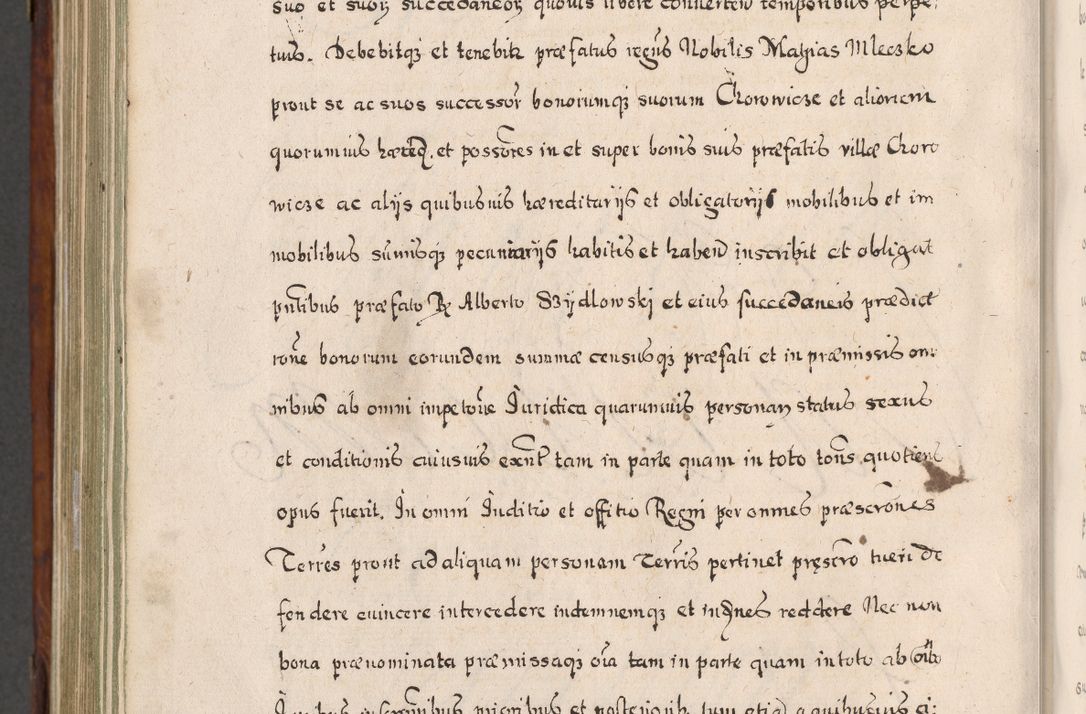 suo et suoꝝ succedaneoꝝ quovis libere converten temporibus perpe:
tuis. Debebitqꝫ et tenebitr præfatus regȓus Nobilis Mathias Mleczko
prout se ac suos successor bonorumqꝫ suorum Chorowicze et aliorum
quorumvis hæredꝫ. et possores in et super bonis suis præfatis villæ Choro
wicze ac alijs quibusvis hæreditarijs et obligatorijs mobilibus et im
mobilibus summisqꝫ pecuniarijs habitis et haben inscribit et obligat
pntibus præfato R Alberto Szydlowskj et eius succedaneis prædict
rone bonorum eorundem summæ censusqꝫ præfati et in præmissis om
nibus ab omni impetone Juridica quarumvis personaꝝ status sexus
et conditionis cuiusvis exnt tam in parte quam in toto tons quotiens
opus fuerit. In omni Juditio et offitio Regni per omnes præscrones
Terres prout ad aliquam personam Terris pertinet pręscro tueri de
fendere evincere intercedere indemnemqꝫ et indnes reddere Nec non
bona prænominata præmissaqꝫ oia tam in parte quam in toto ab oibo